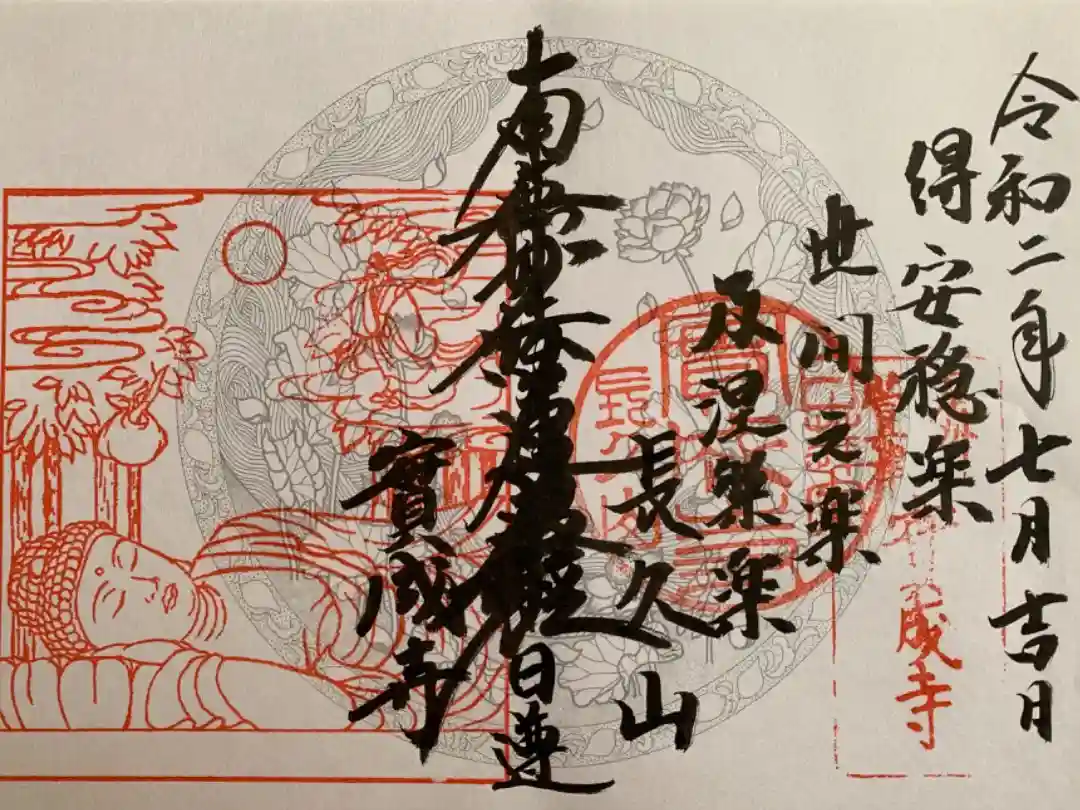 令和二年七月吉日
得安穏楽
世間之楽
及涅槃楽
長久山
南無妙法蓮華経
實成寺
成寺